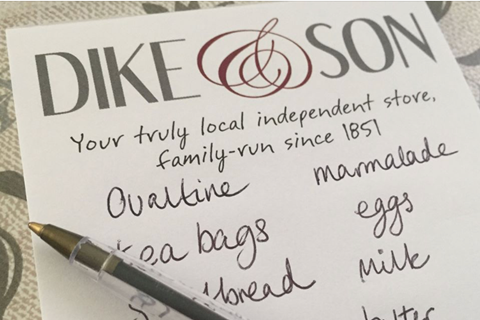 DIKE & SON
Your truly local independent store,
family-run since 1851
Ovaltine marmalade
tea bags eggs
bread milk